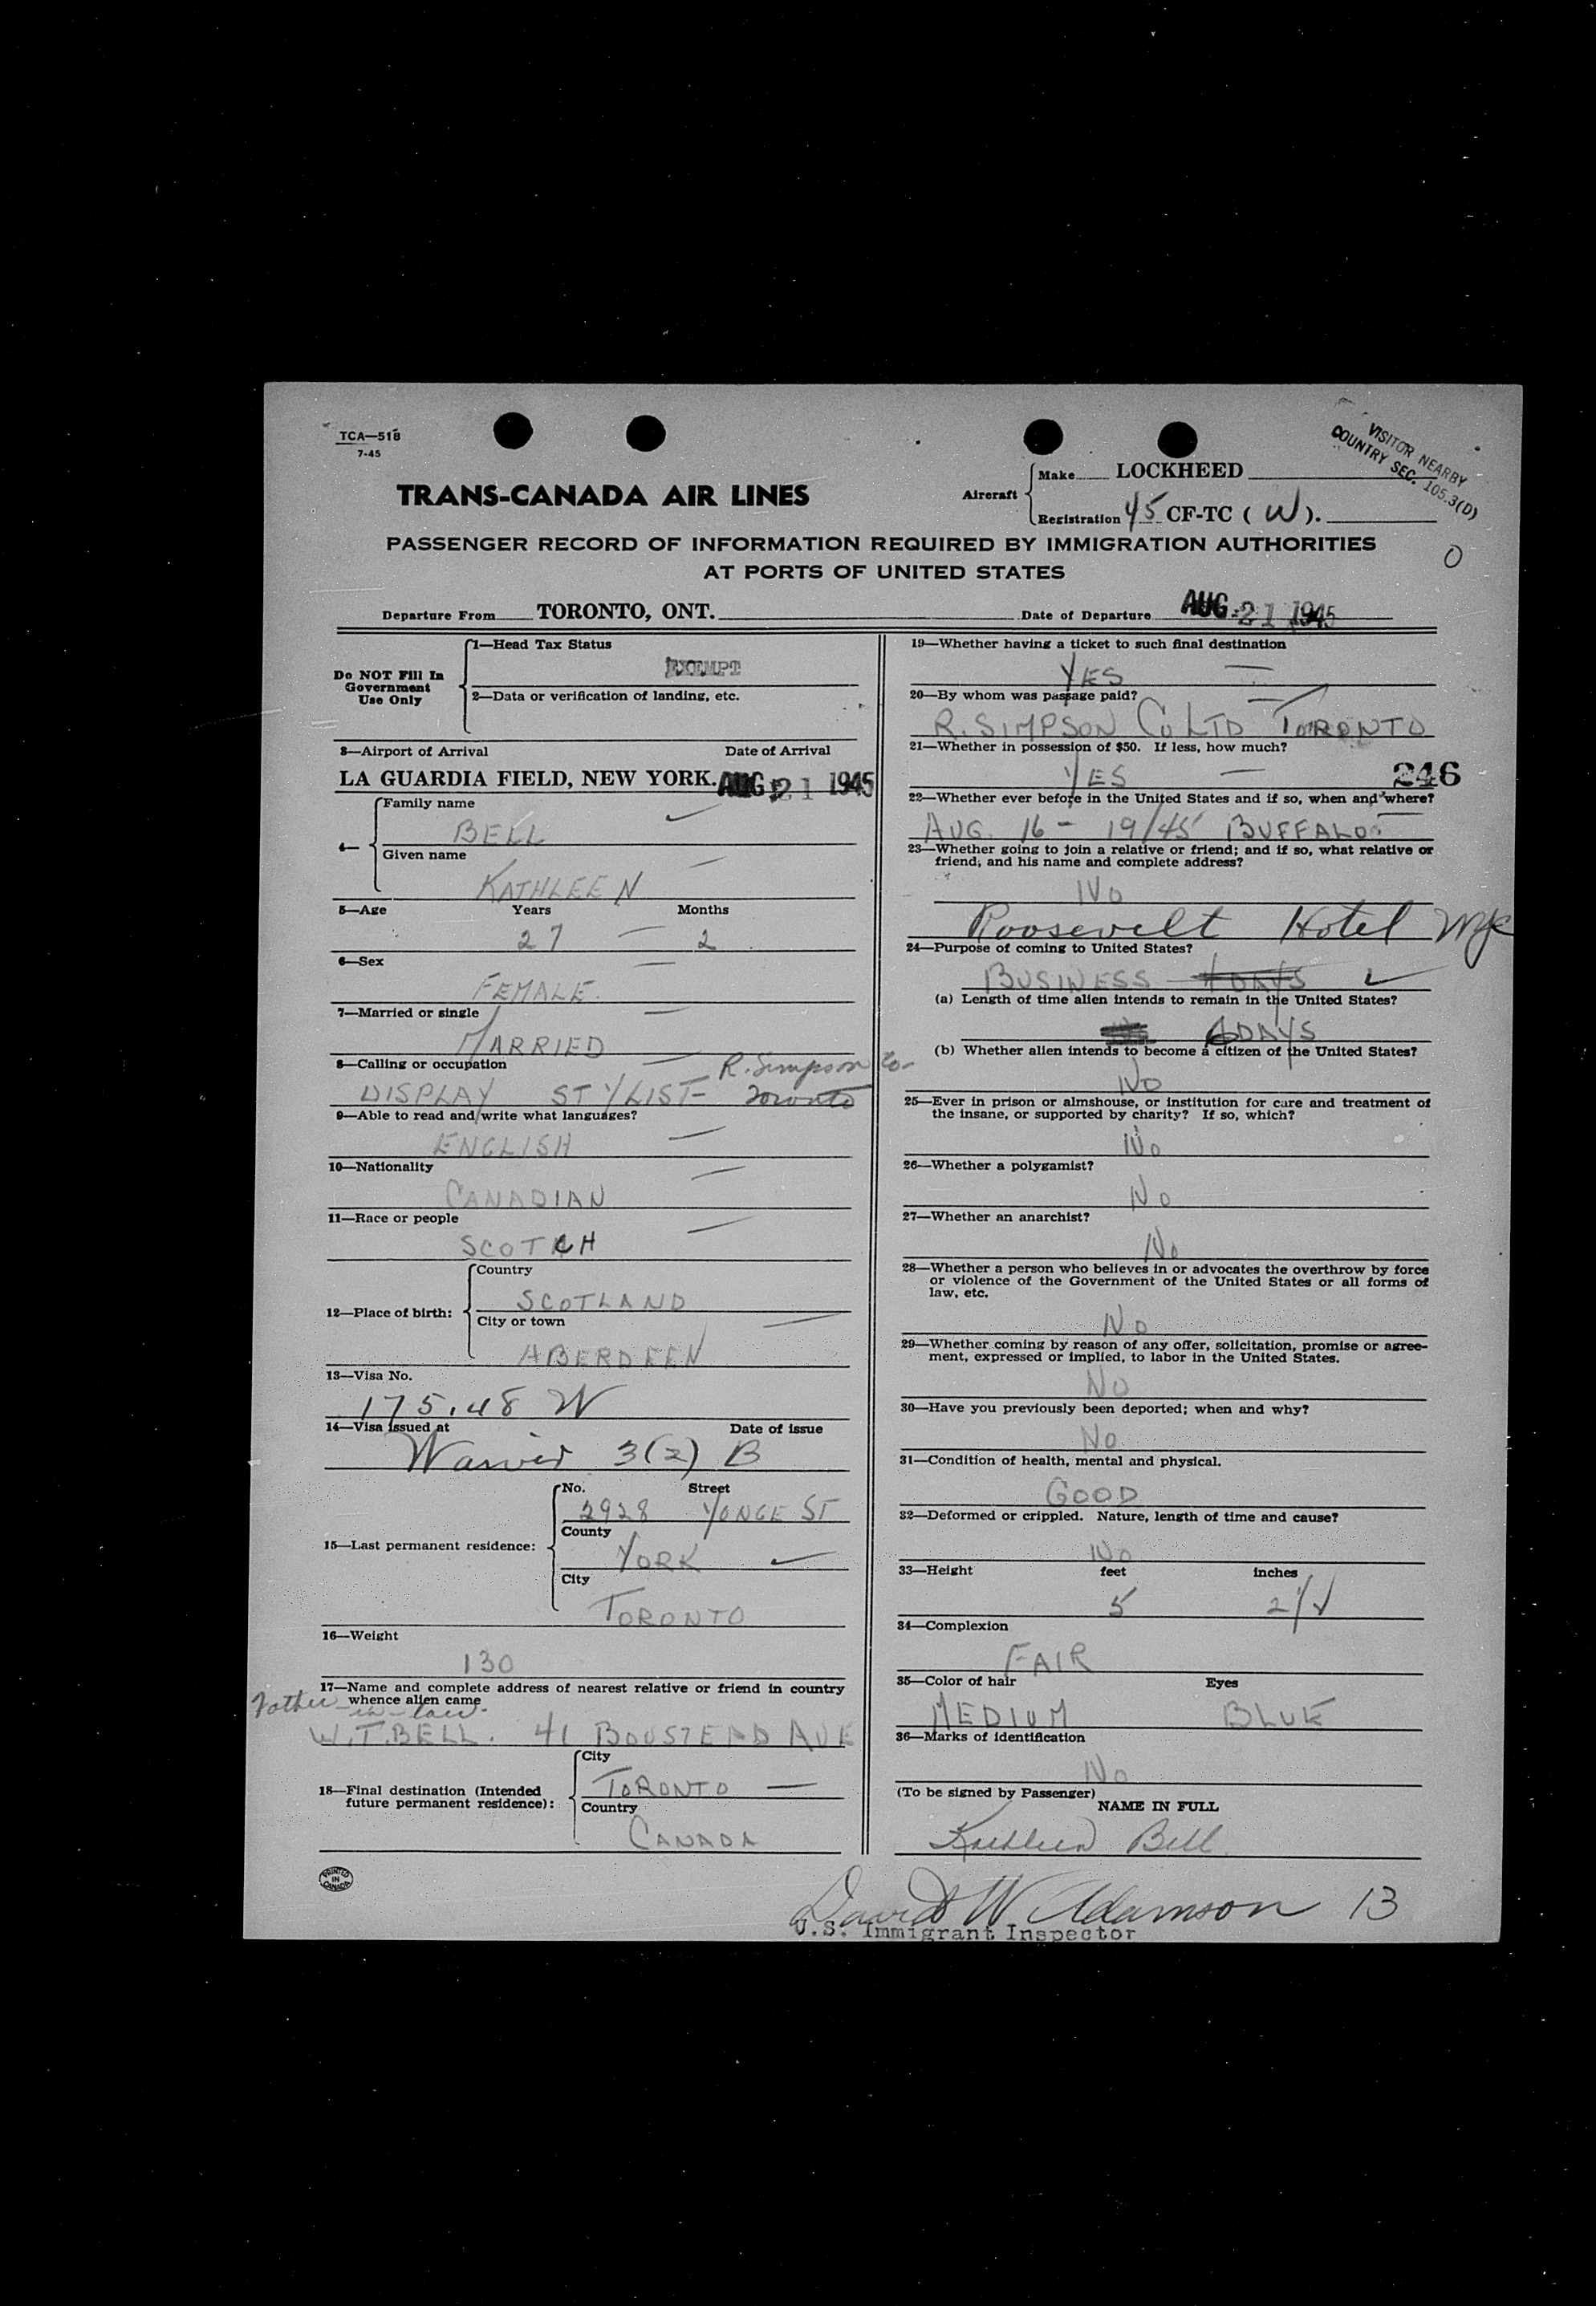 TCA—518
7-45
VISITOR NEARBY
COUNTRY SEC. 105.3(D)
TRANS-CANADA AIR LINES
Aircraft
Make LOCKHEED
Registration 45 CF-TC ( W ).
PASSENGER RECORD OF INFORMATION REQUIRED BY IMMIGRATION AUTHORITIES
AT PORTS OF UNITED STATES
0
Departure From TORONTO, ONT. Date of Departure AUG 21 1945
Do NOT Fill In
Government
Use Only
1—Head Tax Status
EXEMPT
2—Data or verification of landing, etc.
3—Airport of Arrival Date of Arrival
LA GUARDIA FIELD, NEW YORK. AUG 21 1945
4—
Family name
BELL
Given name
KATHLEEN
5—Age Years Months
27 2
6—Sex
FEMALE.
7—Married or single
MARRIED
8—Calling or occupation R. Simpson Co
DISPLAY STYLIST Toronto
9—Able to read and write what languages?
ENGLISH
10—Nationality
CANADIAN
11—Race or people
SCOTCH
12—Place of birth:
Country
SCOTLAND
City or town
ABERDEEN
13—Visa No.
175.48 W
14—Visa issued at Date of issue
3(2) B
15—Last permanent residence:
No. Street
2928 YONGE ST
County
YORK
City
TORONTO
16—Weight
130
17—Name and complete address of nearest relative or friend in country
whence alien came
Father-in-law.
W.T. BELL. 41 BOUSTEAD AVE
18—Final destination (Intended
future permanent residence):
City
TORONTO
Country
CANADA
PRINTED
IN
CANADA
19—Whether having a ticket to such final destination
YES
20—By whom was passage paid?
R. SIMPSON CO LTD TORONTO
21—Whether in possession of $50. If less, how much?
YES 246
22—Whether ever before in the United States and if so, when and where?
AUG. 16 - 19/45 BUFFALO
23—Whether going to join a relative or friend; and if so, what relative or
friend, and his name and complete address?
NO
Roosevelt Hotel NYC
24—Purpose of coming to United States?
BUSINESS 4 DAYS
(a) Length of time alien intends to remain in the United States?
6 DAYS
(b) Whether alien intends to become a citizen of the United States?
NO
25—Ever in prison or almshouse, or institution for care and treatment of
the insane, or supported by charity? If so, which?
NO
26—Whether a polygamist?
NO
27—Whether an anarchist?
NO
28—Whether a person who believes in or advocates the overthrow by force
or violence of the Government of the United States or all forms of
law, etc.
NO
29—Whether coming by reason of any offer, solicitation, promise or agree-
ment, expressed or implied, to labor in the United States.
NO
30—Have you previously been deported; when and why?
NO
31—Condition of health, mental and physical.
GOOD
32—Deformed or crippled. Nature, length of time and cause?
NO
33—Height feet inches
5 2
34—Complexion
FAIR
35—Color of hair Eyes
MEDIUM BLUE
36—Marks of identification
NO
(To be signed by Passenger)
NAME IN FULL
Kathleen Bell
David W Adamson 13
U.S. Immigrant Inspector